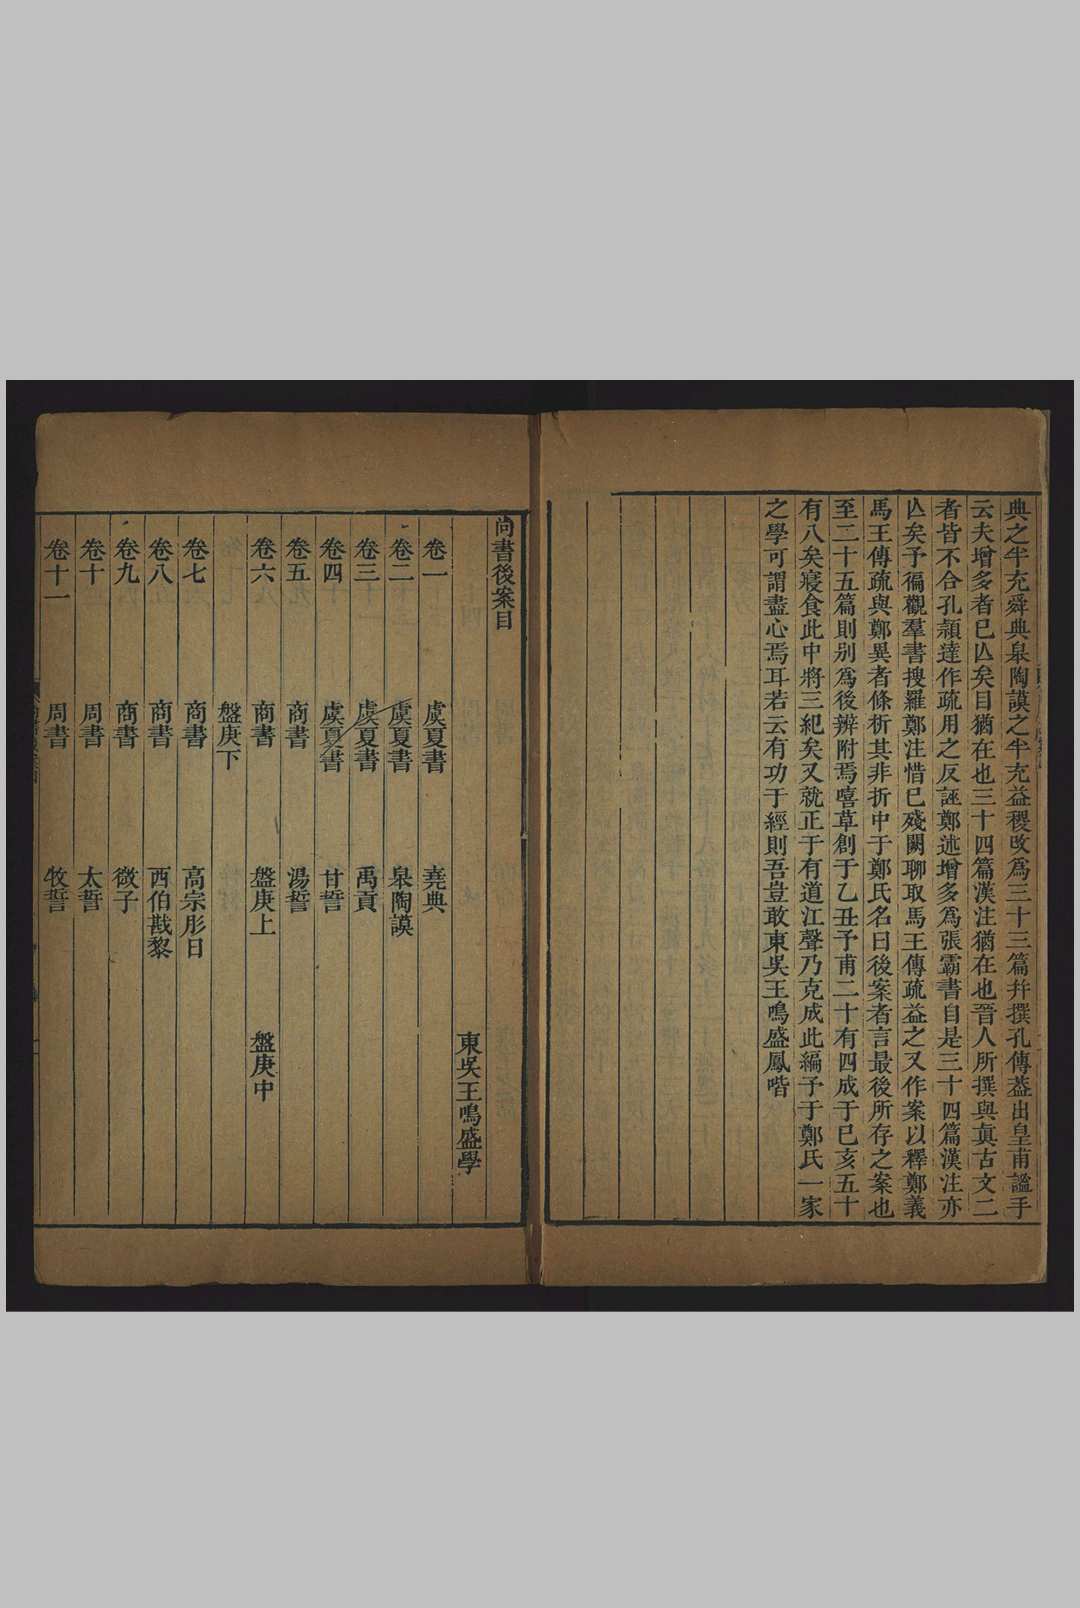 典之半充舜典皋陶謨之半充益稷改為三十三篇并撰孔傳葢出皇甫謐手
云夫增多者已亾矣目猶在也三十四篇漢注猶在也晉人所撰與真古文二
者皆不合孔穎達作疏用之反誣鄭述增多為張霸書自是三十四篇漢注亦
亾矣予徧觀羣書搜羅鄭注惜已殘闕聊取馬王傳疏益之又作案以釋鄭義
馬王傳疏與鄭異者條析其非折中于鄭氏名曰後案者言最後所存之案也
至二十五篇則别為後辨附焉嘻草創于乙丑予甫二十有四成于己亥五十
有八矣寢食此中將三紀矣又就正于有道江聲乃克成此編予于鄭氏一家
之學可謂盡心焉耳若云有功于經則吾豈敢東吳王鳴盛鳳喈
尚書後案目
東吳王鳴盛學
卷一 虞夏書 堯典
卷二 虞夏書 皋陶謨
卷三 虞夏書 禹貢
卷四 虞夏書 甘誓
卷五 商書 湯誓
卷六 商書 盤庚上 盤庚中
盤庚下
卷七 商書 高宗肜日
卷八 商書 西伯戡黎
卷九 商書 微子
卷十 周書 太誓
卷十一 周書 牧誓